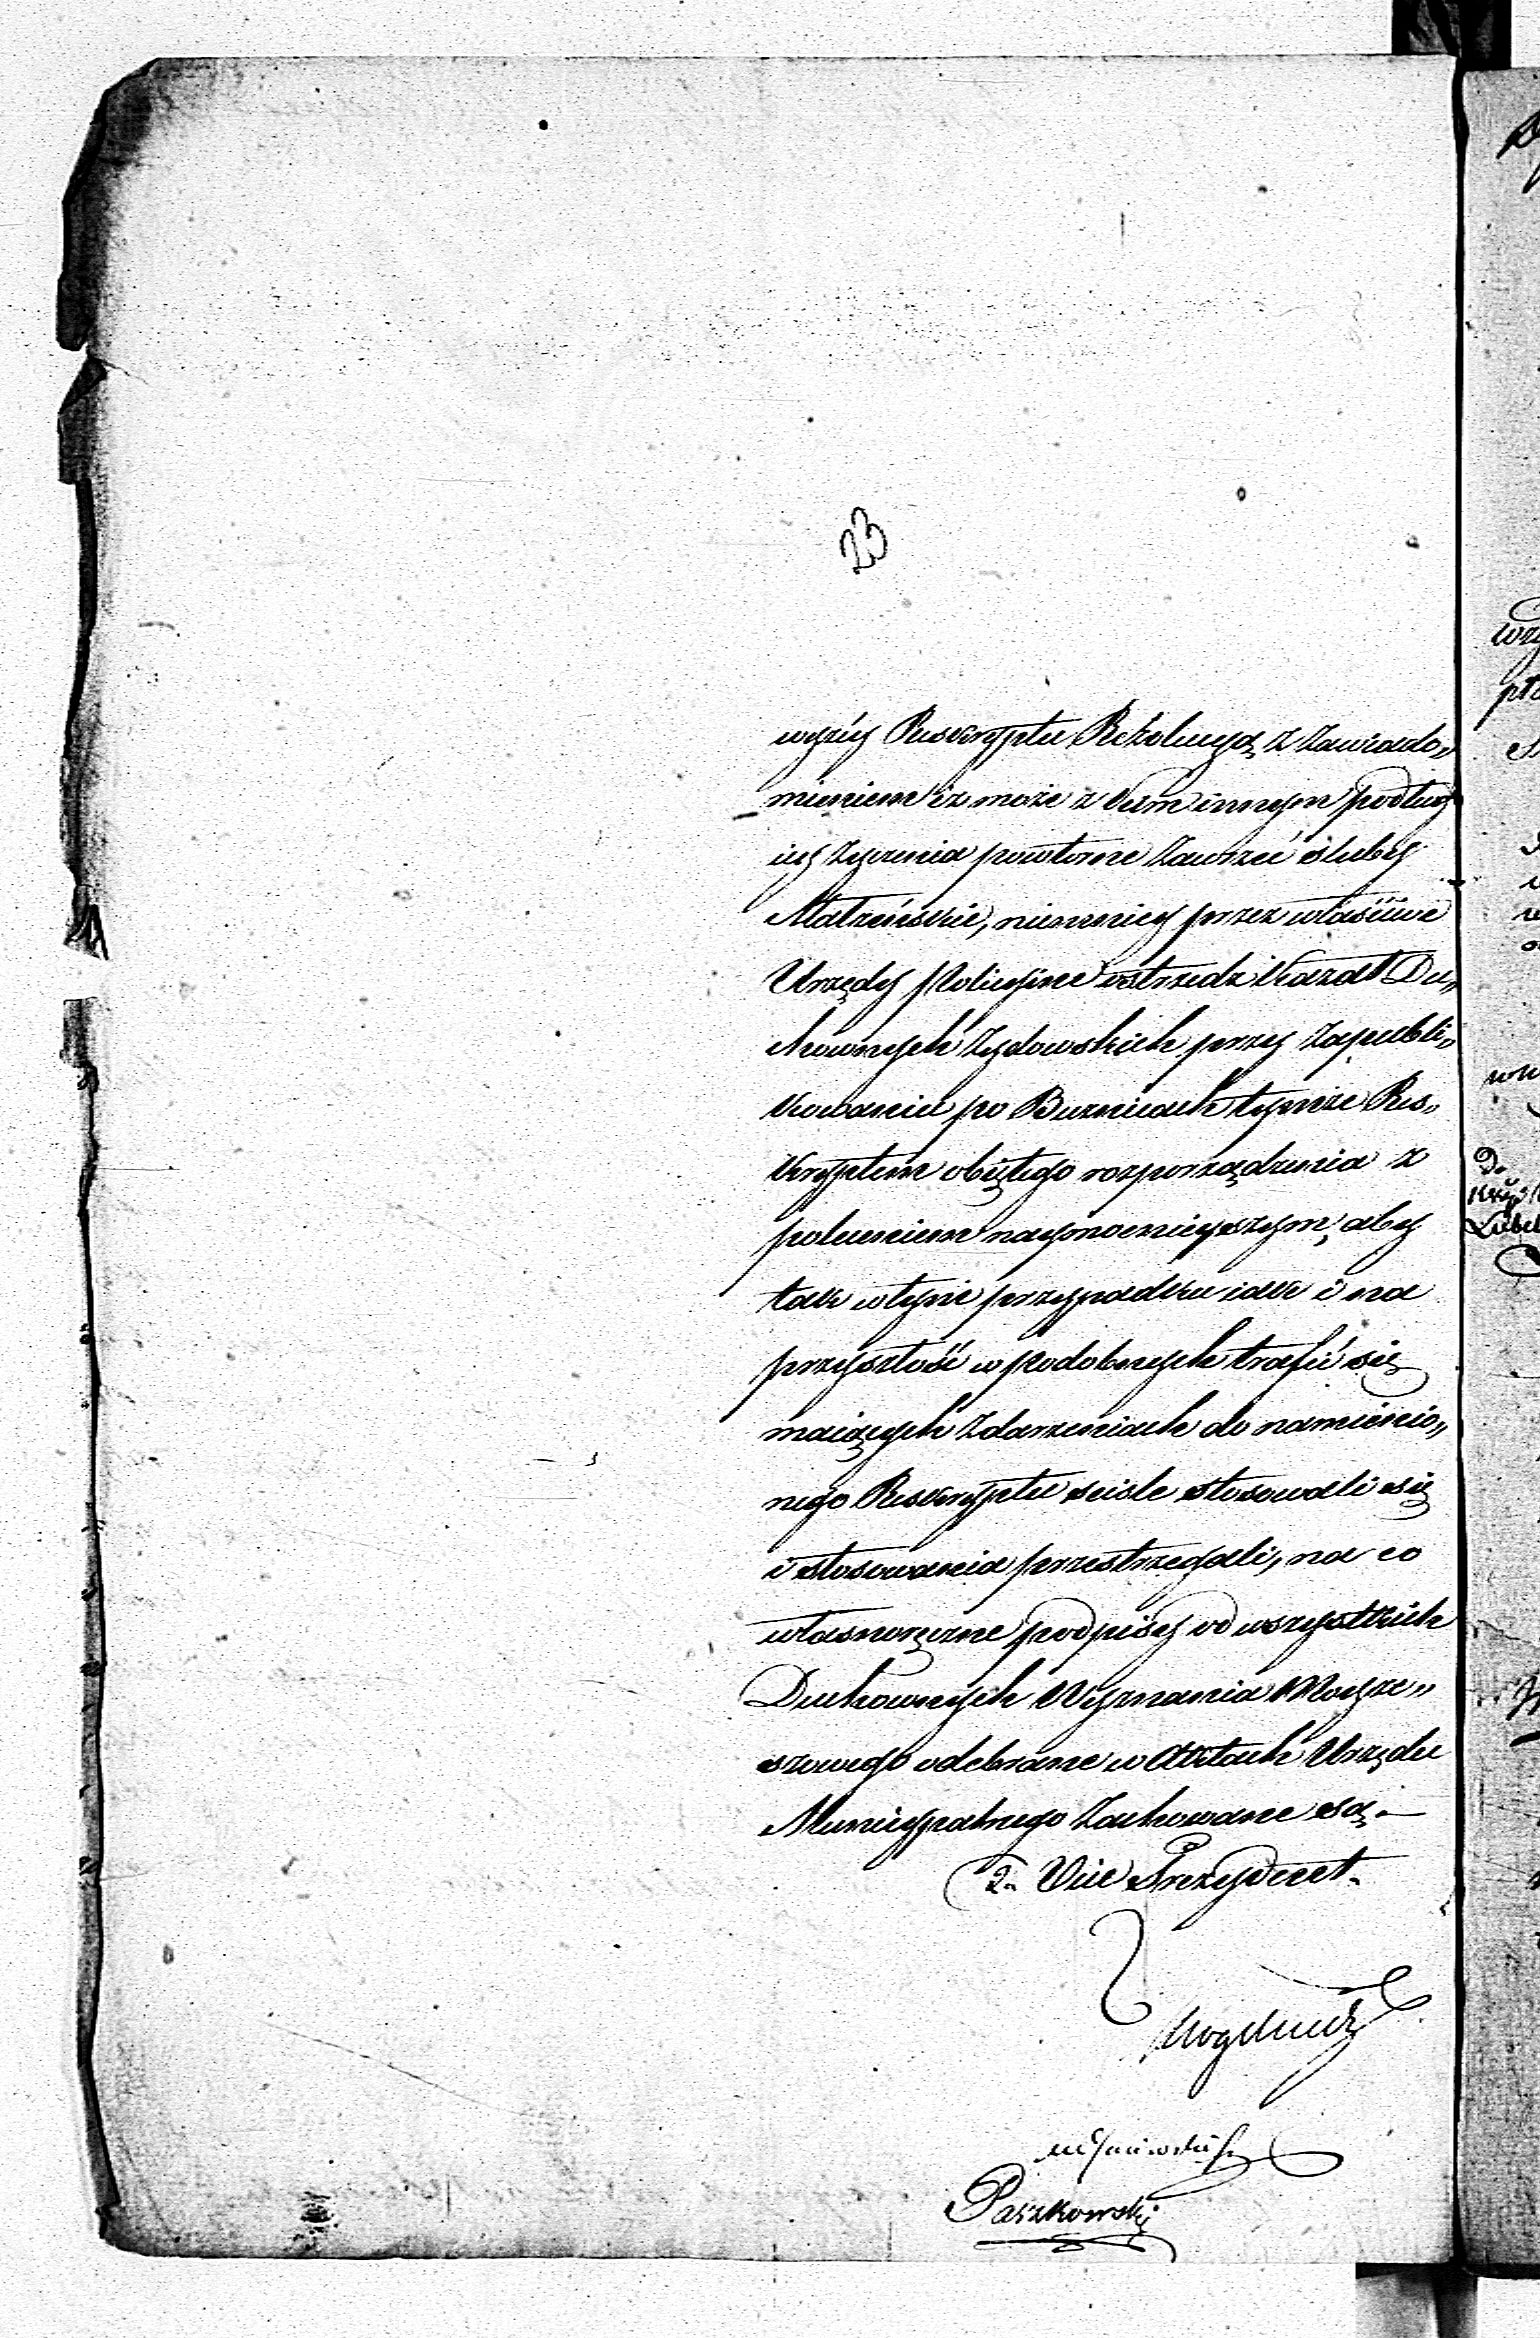 23
wyższy Reskryptu Rezolucyą z zawiado„
mieniem iż może z kim innym podług
iey życzenia powtorne zawrzeć śluby
Małżeńskie, niemniey przez właściwe
Urzędy Policyine ostrzedz kazał Du„
chownych Żydowskich przy zapubli„
kowaniu po Bużnicach tymże Res„
kryptem obiętego rozporządzenia z
poleceniem naymocnieyszym, aby
tak w tym przypadku iak i na
przyszłość w podobnych trafić się
maiących zdarzeniach do namienio„
nego Reskryptu scisle stosowali się
i stosowania przestrzegali, na co
własnoręczne podpisy od wszystkich
Duchownych Wyznania Moyże„
szowego odebrane w Aktach Urzędu
Municypalnego zachowane są.—
Vice Prezydent.
Paszkowski